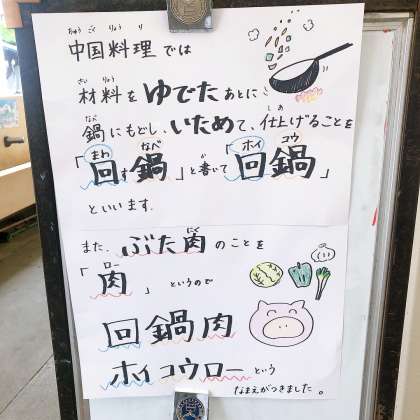 ちゅうごくりょうり
中国料理では
ざいりょう
材料をゆでたあとに
なべ しあ
鍋にもどし、いためて、仕上げることを
まわ なべ か ホイ コウ
「回す鍋」と書いて「回鍋」
といいます。
また、ぶた肉のことを
にく
ロー
「肉」というので
回鍋肉
ホイコウローという
なまえがつきました。